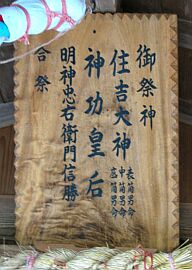 御祭神
住吉大神
表筒男命
中筒男命
底筒男命
神功皇后
明神忠右衛門信勝
合祭